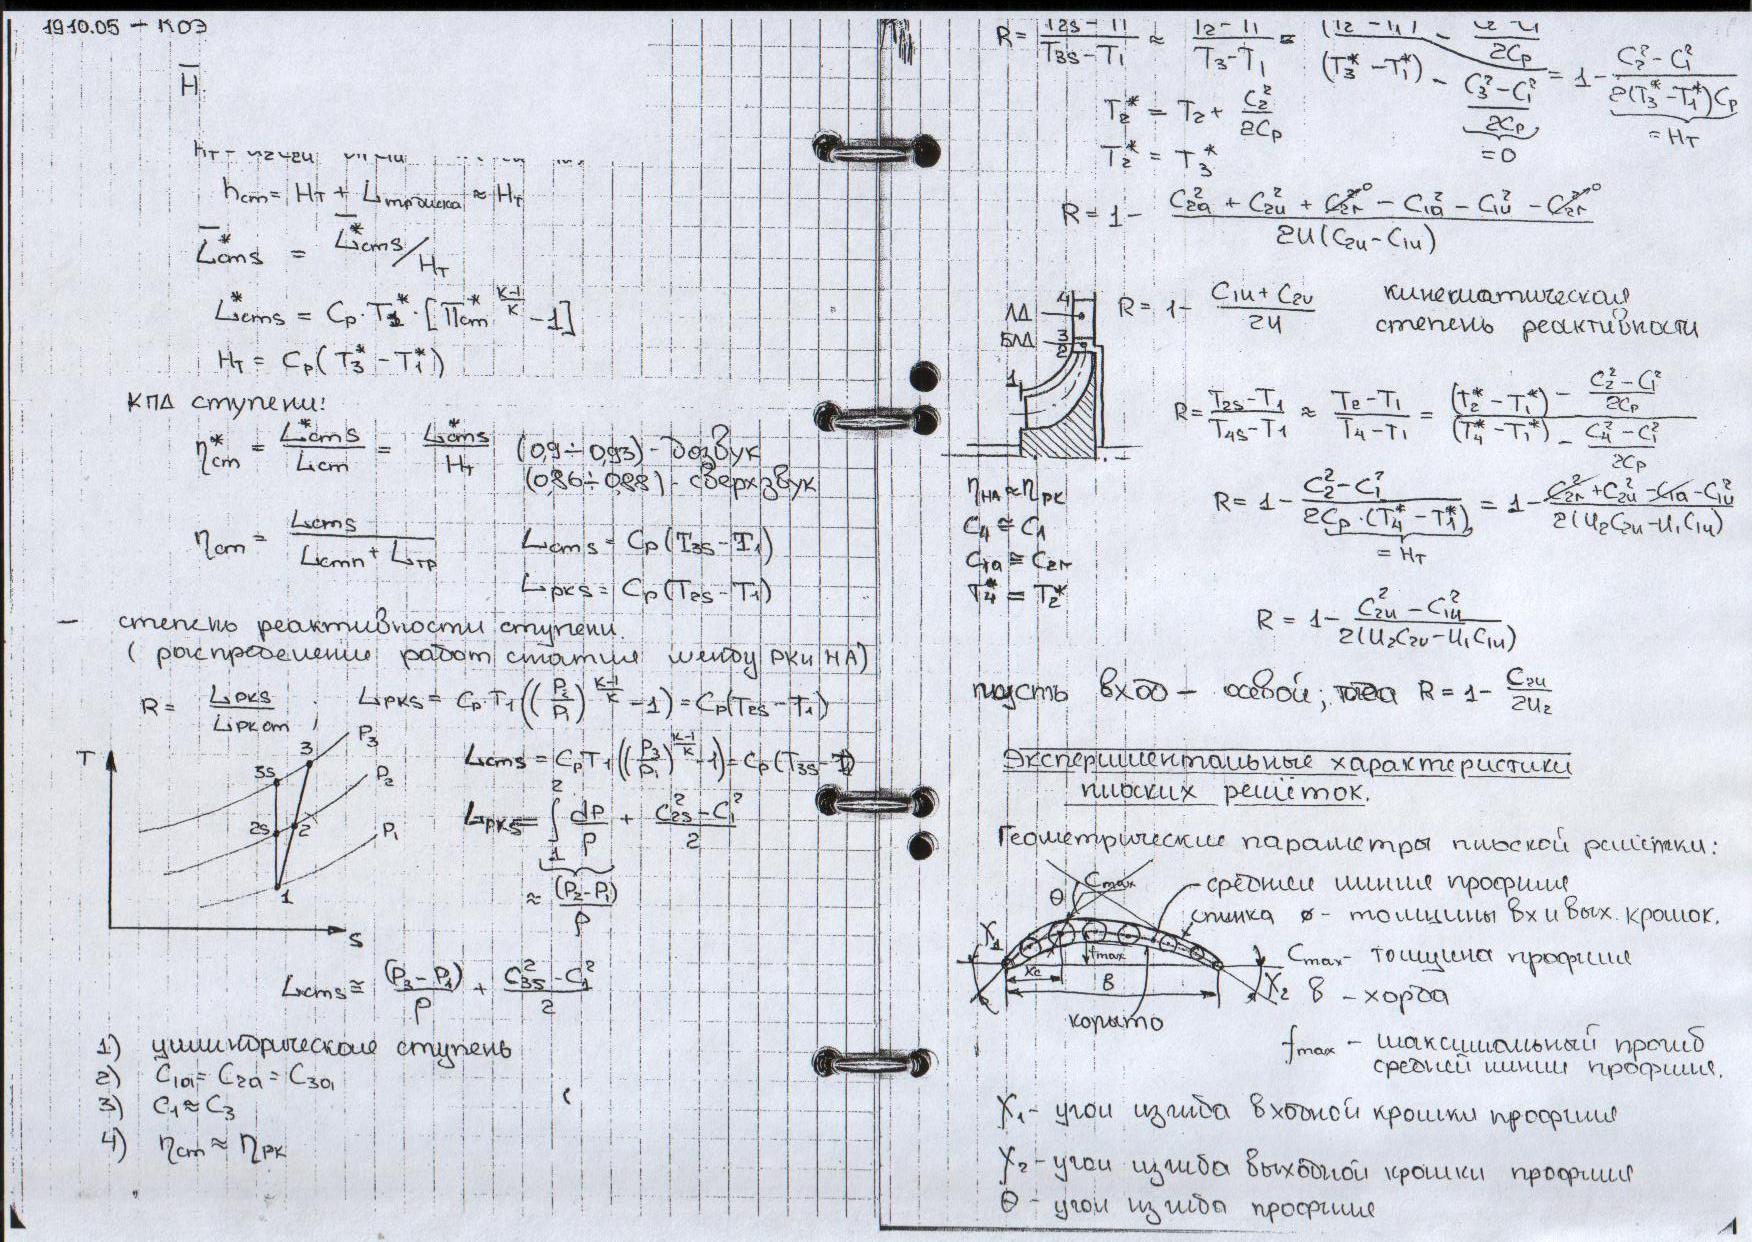 19.10.05 – КОЭ
H̅
h_ст = H_т + L_тр диска ≈ H_т
L̅*_стs = L*_стs / H_т
L*_стs = Cp·T₁*·[π_ст*^((к-1)/к) - 1]
H_т = Cp(T₃* - T₁*)
КПД ступени:
η*_ст = L*_стs / L_ст = L*_стs / H_т (0,9÷0,93) - дозвук
(0,86÷0,88) - сверхзвук
η_ст = L_стs / (L_стп + L_тр) L_стs = Cp(T₃s - T₁)
L_ркs = Cp(T₂s - T₁)
– степень реактивности ступени.
(распределение работ сжатия между РК и НА)
R = L_ркs / ; L_ркs = Cp·T₁((P₂/P₁)^((к-1)/к) - 1) = Cp(T₂s - T₁)
L_стs = CpT₁((P₃/P₁)^((к-1)/к) - 1) = Cp(T₃s - T₁)
T 3s 3 P₃
2s 2 P₂
1 P₁
S
L_ркs = ∫₁² dP/ρ + (C₂s² - C₁²)/2
≈ (P₂ - P₁)/ρ
L_стs ≅ (P₃ - P₁)/ρ + (C₃s² - C₁²)/2
1) цилиндрическая ступень
2) C₁a = C₂a = C₃a
3) C₁ ≈ C₃
4) η_ст ≈ η_рк
R = (T₂s - T₁)/(T₃s - T₁) ≈ (T₂ - T₁)/(T₃ - T₁) = ((T₂* - T₁*) - (C₂² - C₁²)/2Cp)/((T₃* - T₁*) - (C₃² - C₁²)/2Cp) = 1 - (C₂² - C₁²)/(2(T₃* - T₁*)Cp)
= 0 = H_т
T₂* = T₂ + C₂²/2Cp
T₂* = T₃*
R = 1 - (C₂a² + C₂u² + C₂r² - C₁a² - C₁u² - C₂r²)/(2U(C₂u - C₁u))
R = 1 - (C₁u + C₂u)/2U кинематическая
степень реактивности
4
ЛД
БЛД 3
2
1
R = (T₂s - T₁)/(T₄s - T₁) ≈ (T₂ - T₁)/(T₄ - T₁) = ((T₂* - T₁*) - (C₂² - C₁²)/2Cp)/((T₄* - T₁*) - (C₄² - C₁²)/2Cp)
η_НА ≈ η_РК
C₄ ≅ C₁
C₁a ≅ C₂r
T₄* = T₂*
R = 1 - (C₂² - C₁²)/(2Cp·(T₄* - T₁*)) = 1 - (C₂r² + C₂u² - C₁a - C₁u²)/(2(U₂C₂u - U₁C₁u))
= H_т
R = 1 - (C₂u² - C₁u²)/(2(U₂C₂u - U₁C₁u))
пусть вход – осевой; тогда R = 1 - C₂u/2U₂
Экспериментальные характеристики
плоских решёток.
Геометрические параметры плоской решётки:
θ Cmax средней линия профиля
спинка ø - толщины вх и вых. крошок.
χ₁ fmax Cmax - толщина профиля
Xc
в χ₂ в – хорда
корыто
fmax – максимальный прогиб
средней линии профиля.
χ₁ - угол изгиба входной крошки профиля
χ₂ - угол изгиба выходной крошки профиля
θ - угол изгиба профиля
1